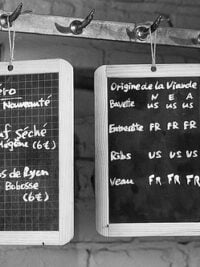 ro
Nouveauté
uf Séché
(6€)
os de Ryan
Bobosse
(6€)
Origine de la Viande
N E A
Bavette US US US
Entrecôte FR FR FR
Ribs US US US
Veau FR FR FR